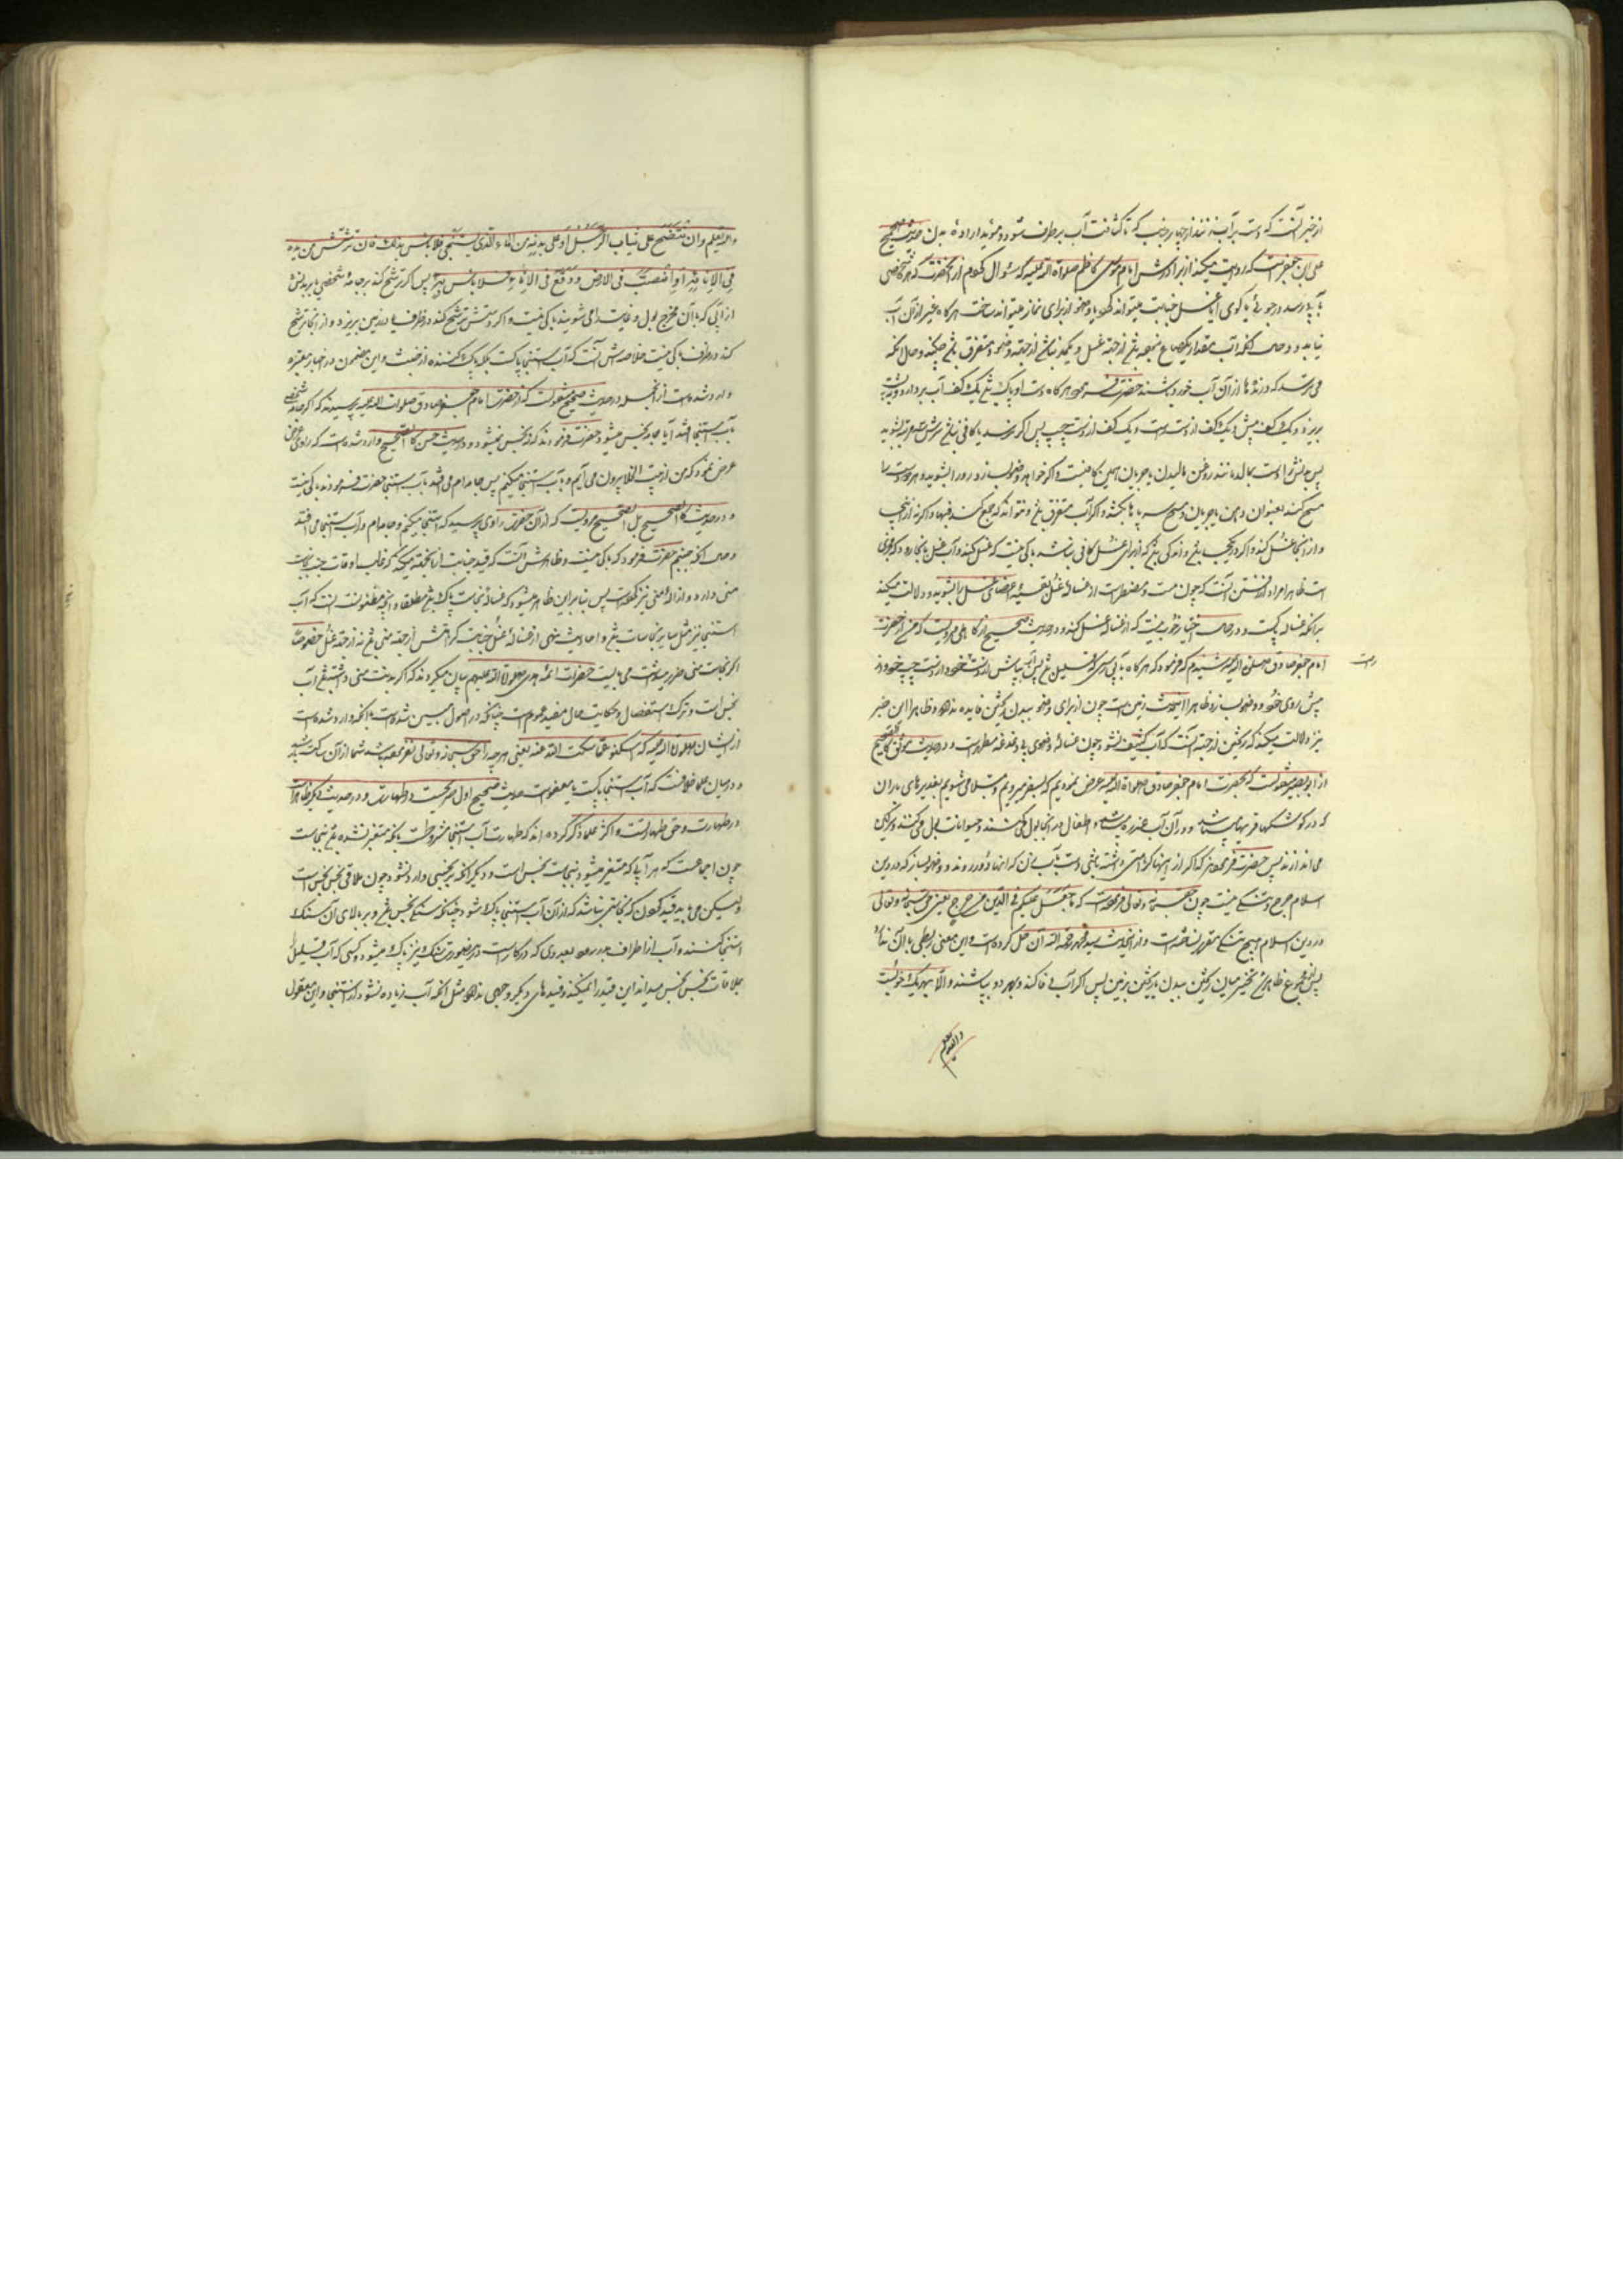 از خبر آنست که دست بر آب زنند از چهار جانب که تا کثافت آب برطرف شود و مؤید اراده بدن حدیث صحیح
علی بن جعفر است که روایت میکند از برادرش امام موسی کاظم صلوات الله علیه که سئوال کردم از آنحضرت که هرگاه شخصی
بآبی رسد در جوئی یا گوی آیا غسل جنابت میتواند کرد یا وضو از برای نماز میتواند ساخت هرگاه غیر از آن آب
نیابد و حال آنکه آب بمقدار یکصاع نبوده باشد از جهة غسل و یکمد نباشد از جهة وضو و متفرق باشد چکند و حال آنکه
می ترسد که درندها از آن آب خورده باشند حضرت فرمود هرگاه دست او پاک باشد یک کف آب بردارد و پشت
بریزد و یک کف پیش و یک کف از دست راست و یک کف از دست چپ پس اگر ترسد که کافی نباشد سرش را سه مرتبه بشوید
پس بدنش را دست بمالد مانند روغن مالیدن با جریان همین کافیست و اگر خواهد وضو بسازد رو را بشوید و هر دو دست را
مسح کند بعنوان دهن با جریان و مسح سر و پاها بکشد و اگر آب متفرق باشد و تواند که جمع کند فبها و اگر نه از اینجا
و از آنجا غسل کند و اگر در یکجا باشد و اندکی باشد که از برای غسل کافی نباشد باکی نیست که غسل کند و آب غسل بآنجا رود که مجزی
است ظاهرا مراد از شستن آنست که چون هست و مضطر است از غساله غسل بقیه اعضای غسل را بشوید و دلالت میکند
بر آنکه غساله پاکست و در حال اختیار خوب نیست که از غساله غسل کند و در حدیث صحیح از کاهلی مرویست که من از حضرت
امام جعفر صادق صلوات الله علیه شنیدم که فرمود که هرگاه بآبی رسی که قلیل باشد پس آب بپاش از دست خود و از دست چپ خود و از
راست
پیش روی خود و وضو بساز و ظاهرا اینحدیث زمین است چون از برای وضو ببدن ریختن فایده ندارد و ظاهرا این خبر
نیز دلالت میکند که ریختن از جهة آنست که آب کثیف نشود چون غساله وضوی بی دغدغه مطهر است و در حدیث موثق کالصحیح
از ابوبصیر منقولست که بحضرت امام جعفر صادق صلوات الله علیه عرض نمودیم که بسفر میرویم و مبتلا می شویم بغدیرهای باران
که در گوشهای قریها میباشد و در آن آب عذره میباشد و اطفال در آنجا بول می کنند و حیوانات بول می کنند و سرگین
می اندازند پس حضرت فرمودند که اگر از اینها کراهتی داشته باشی دست بآب زن که اینها دور روند و وضو بساز که در دین
اسلام حرج و تنگی نیست چون حق سبحانه و تعالی فرموده است که ما جعل علیکم فی الدین من حرج یعنی حق سبحانه و تعالی
در دین اسلام هیچ تنگی مقرر نساخته است و از اینحدیث سید بن طاوس رحمه الله آن حل کرده است و این معنی ربطی بآن ندارد
پس در مجموع ظاهرا تخییر میان ریختن ببدن یا ریختن بزمین پس اگر آب وفا کند و بهر دو بپاشند و الا بهر یک خوبست
والله یعلم
والله تعلم وان ینتضح علی ثیاب الرجل او علی بدنه من الماء الذی یستنجی به فلا باس بذلک فان ترشش من یده
فی الاناء او انصب فی الارض و وقع فی الاناء فلا باس به پس اگر ترشح کند بر جامه شخصی یا بر بدنش
از آبی که بآن مخرج بول و غایط را می شویند باکی نیست و اگر دستش ترشح کند در ظرف یا در زمین بریزد و از آنجا ترشح
کند در ظرف باکی نیست خلاصه اش آنست که آب استنجا پاکست بلکه پاک کننده از خبث و این مضمون در اخبار معتبره
وارد شده است از آنجمله در حدیث صحیح منقولست که از حضرت امام جعفر صادق صلوات الله علیه پرسیدند که اگر جامه شخصی
بآب استنجا افتد آیا جامه نجس میشود حضرت فرمودند که نه نجس نمیشود و در حدیث حسن کالصحیح وارد شده است که راوی
عرض نمود که من از بیت الخلا بیرون می آیم و بآب استنجا میکنم پس جامه ام می افتد بآب استنجا حضرت فرمودند باکی نیست
و در حدیث کالصحیح بل الصحیح مرویست که از آن حضرت راوی پرسید که استنجا میکنم و جامه ام در آب استنجا می افتد
و حال آنکه جنبم حضرت فرمود که باکی نیست و ظاهرش آنست که قید جنابت از آنجهة میکند که غالب اوقات جنب نجاست
منی دارد و ازاله منی نیز کرده است پس بنابراین ظاهر میشود که غساله نجاست پاک باشد مطلقا و آنچه مظنونست آنست که آب
استنجا نیز مثل سایر نجاسات باشد و احادیث نهی از غساله غسل جنابت کراهتش از جهة منی باشد نه از جهة غسل خصوصا
اگر نجاست منی ضرر میداشت می بایست حضرات ائمه هدی صلوات الله علیهم بیان میکردند که اگر بدنت منی داشته باشد آب
نجس است و ترک استفصال و حکایت حال مفید عموم است چنانکه در اصول مبین شده است با آنکه وارد شده است
از ایشان صلوات الله علیهم که اسکتوا عما سکت الله عنه یعنی هر چه را حق سبحانه و تعالی نفرموده باشد شما از آن ساکت باشید
و در میان علما خلافست که آب استنجا پاکست یا معفو است حدیث صحیح اول صریحست در طهارت و در حدیث دیگر ظاهر است
در طهارت و حق طهارتست و اکثر علما ذکر کرده اند که طهارت آب استنجا مشروطست بآنکه متغیر نشده باشد بنجاست
چون اجماعست که هر آبی که متغیر میشود بنجاست نجس است و دیگر آنکه بر نجسی وارد نشود چون ملاقی نجس نجس است
ولیکن می باید قید کردن که نجاستی نباشد که از آن آب استنجا پاک شود چنانکه سنگی نجس باشد و بر بالای آن سنگ
استنجا کنند و آب از اطراف بدر رود بعددی که در کار است در اینصورت سنگ نیز پاک میشود و کسی که آب قلیل را
بملاقات نجس نجس میداند این قید را نمیکند و قیدهای دیگر وجهی ندارد مثل آنکه آب زیاده نشود از استنجا و این معقول